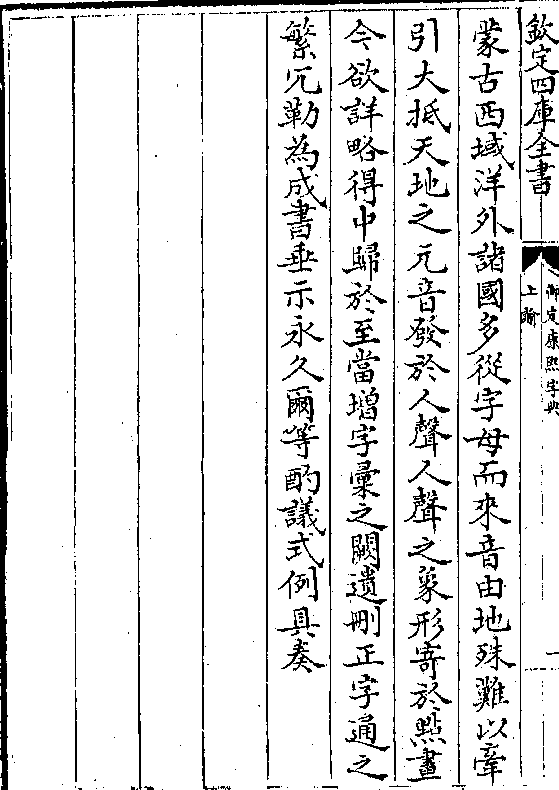 欽定四庫全書
御定康熙字典
上諭
一
蒙古西域洋外諸國多從字母而來音由地殊難以牽
引大抵天地之元音發於人聲人聲之象形寄於點畫
今欲詳略得中歸於至當增字彙之闕遺刪正字通之
繁冗勒為成書垂示永久爾等酌議式例具奏